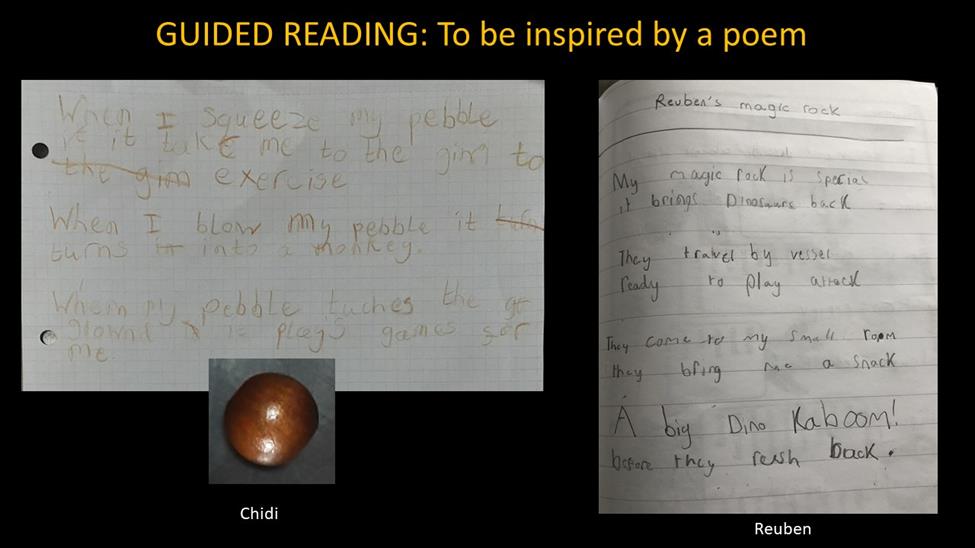 GUIDED READING: To be inspired by a poem
When I squeeze my pebble
it it take me to the gim to
the gim exercise
When I blow my pebble it turn
turns it into a monkey.
When my pebble tuches the gr
glownd it plays games for
me.
Chidi
Reuben's magic rock
My magic rock is special
it brings Dinosaurs back
They travel by vessel
ready to play attack
They come to my small room
they bring me a snack
A big Dino Kaboom!
before they rush back.
Reuben